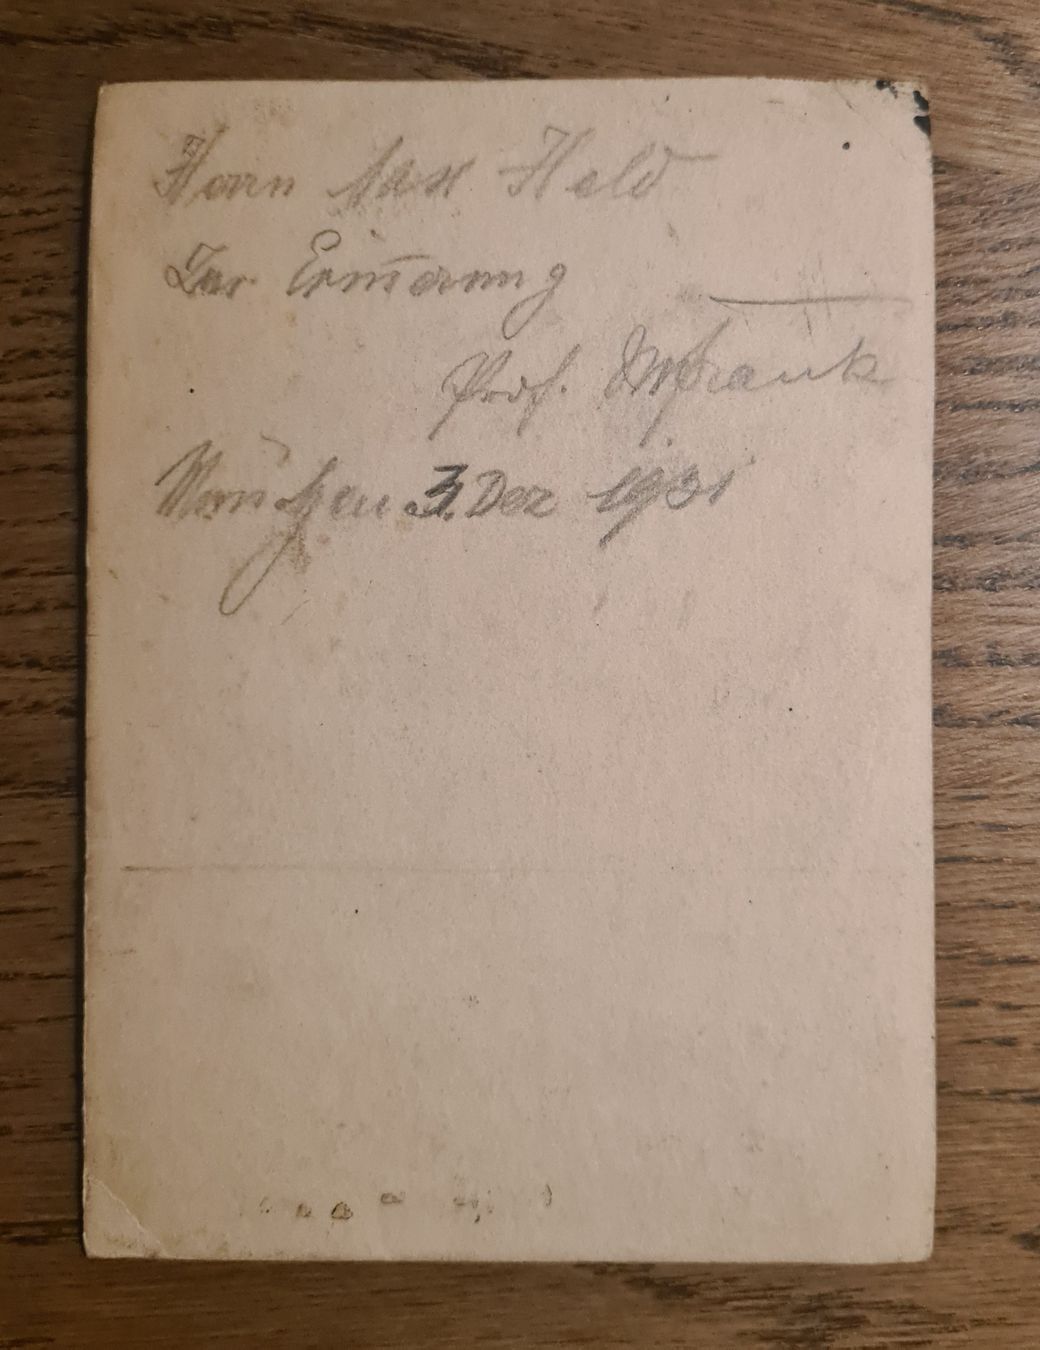 Herrn Max Held
Zur Erinn̅erung
Prof. Frank
München 3. Dez 1931